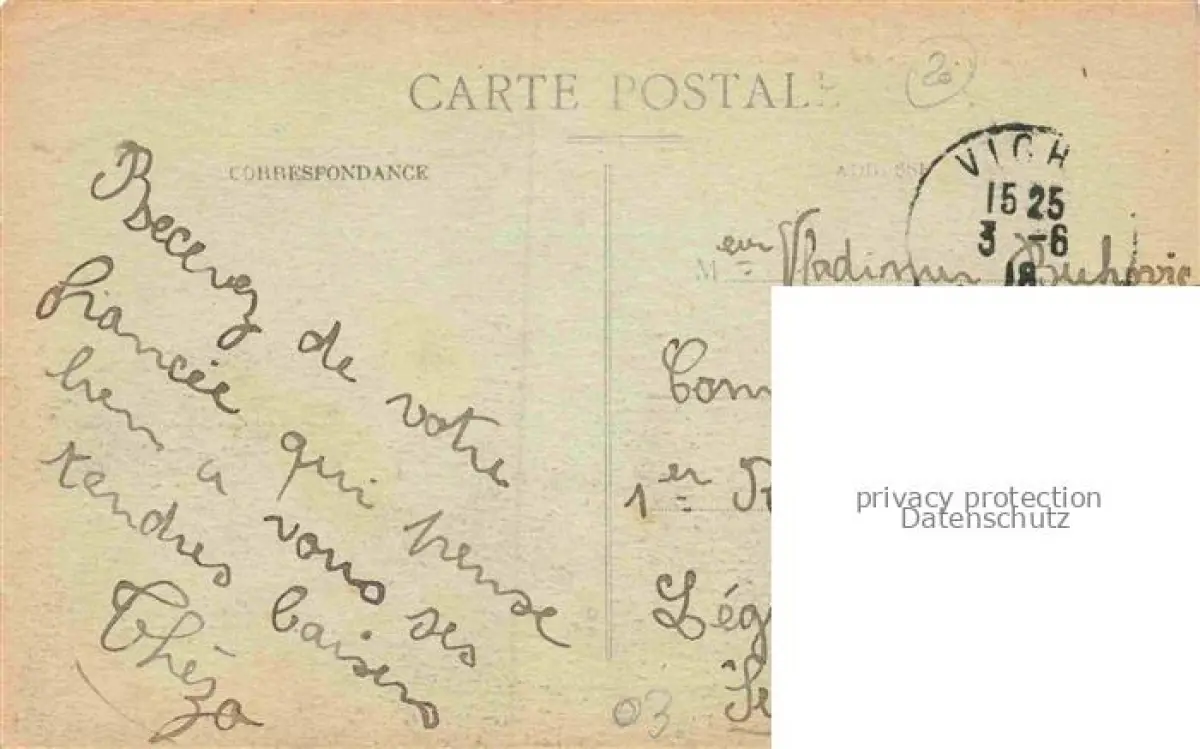 CARTE POSTALE
20
CORRESPONDANCE
ADRESSE
VICH
15 25
3 -6
18
Recevez de votre
fiancée qui pense
bien a vous ses
tendres baisers
Thèza
Meur Vladimir
1er
Lég
03
privacy protection
Datenschutz